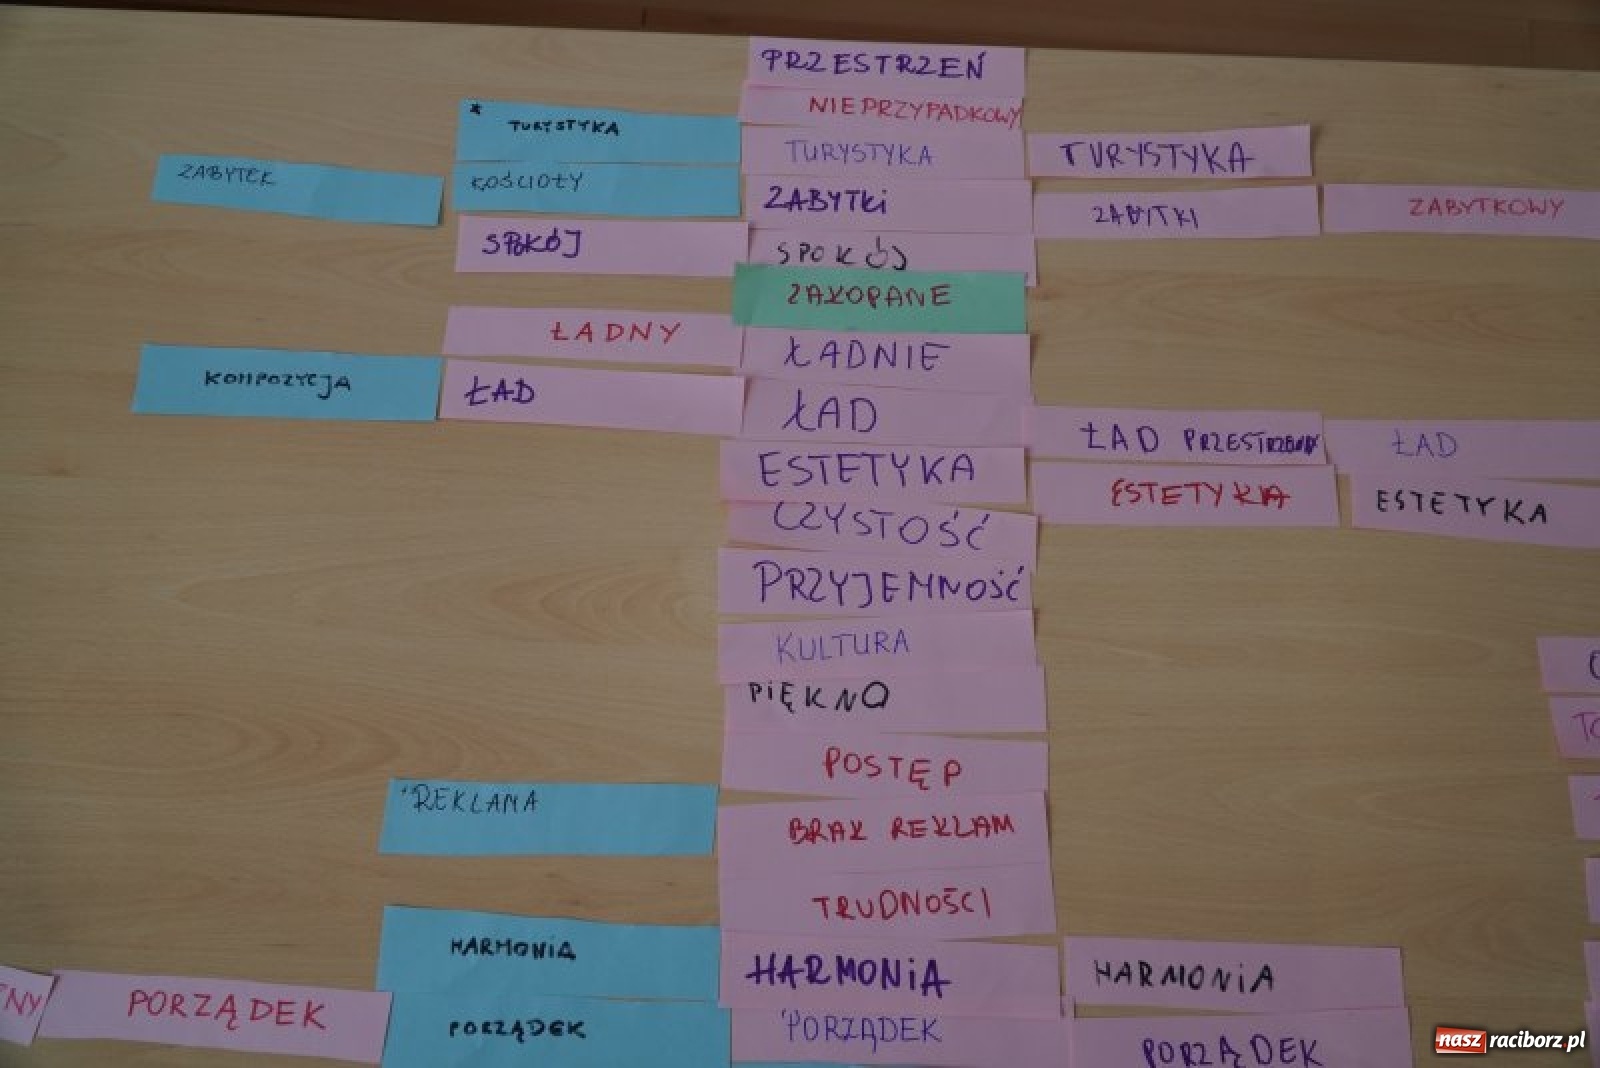 PRZESTRZEŃ
NIEPRZYPADKOWY
* TURYSTYKA
TURYSTYKA
TURYSTYKA
ZABYTEK
KOŚCIOŁY
ZABYTKi
ZABYTKI
ZABYTKOWY
SPOKÓJ
SPOKÓJ
ZAKOPANE
ŁADNY
ŁADNIE
KOMPOZYCJA
ŁAD
ŁAD
ŁAD PRZESTRZENNY
ŁAD
ESTETYKA
ESTETYKA
ESTETYKA
CZYSTOŚĆ
PRZYJEMNOŚĆ
KULTURA
PIĘKNO
POSTĘP
REKLAMA
BRAK REKLAM
TRUDNOŚCI
HARMONiA
HARMONiA
HARMONiA
PORZĄDEK
PORZĄDEK
PORZĄDEK
PORZĄDEK
nasz raciborz.pl